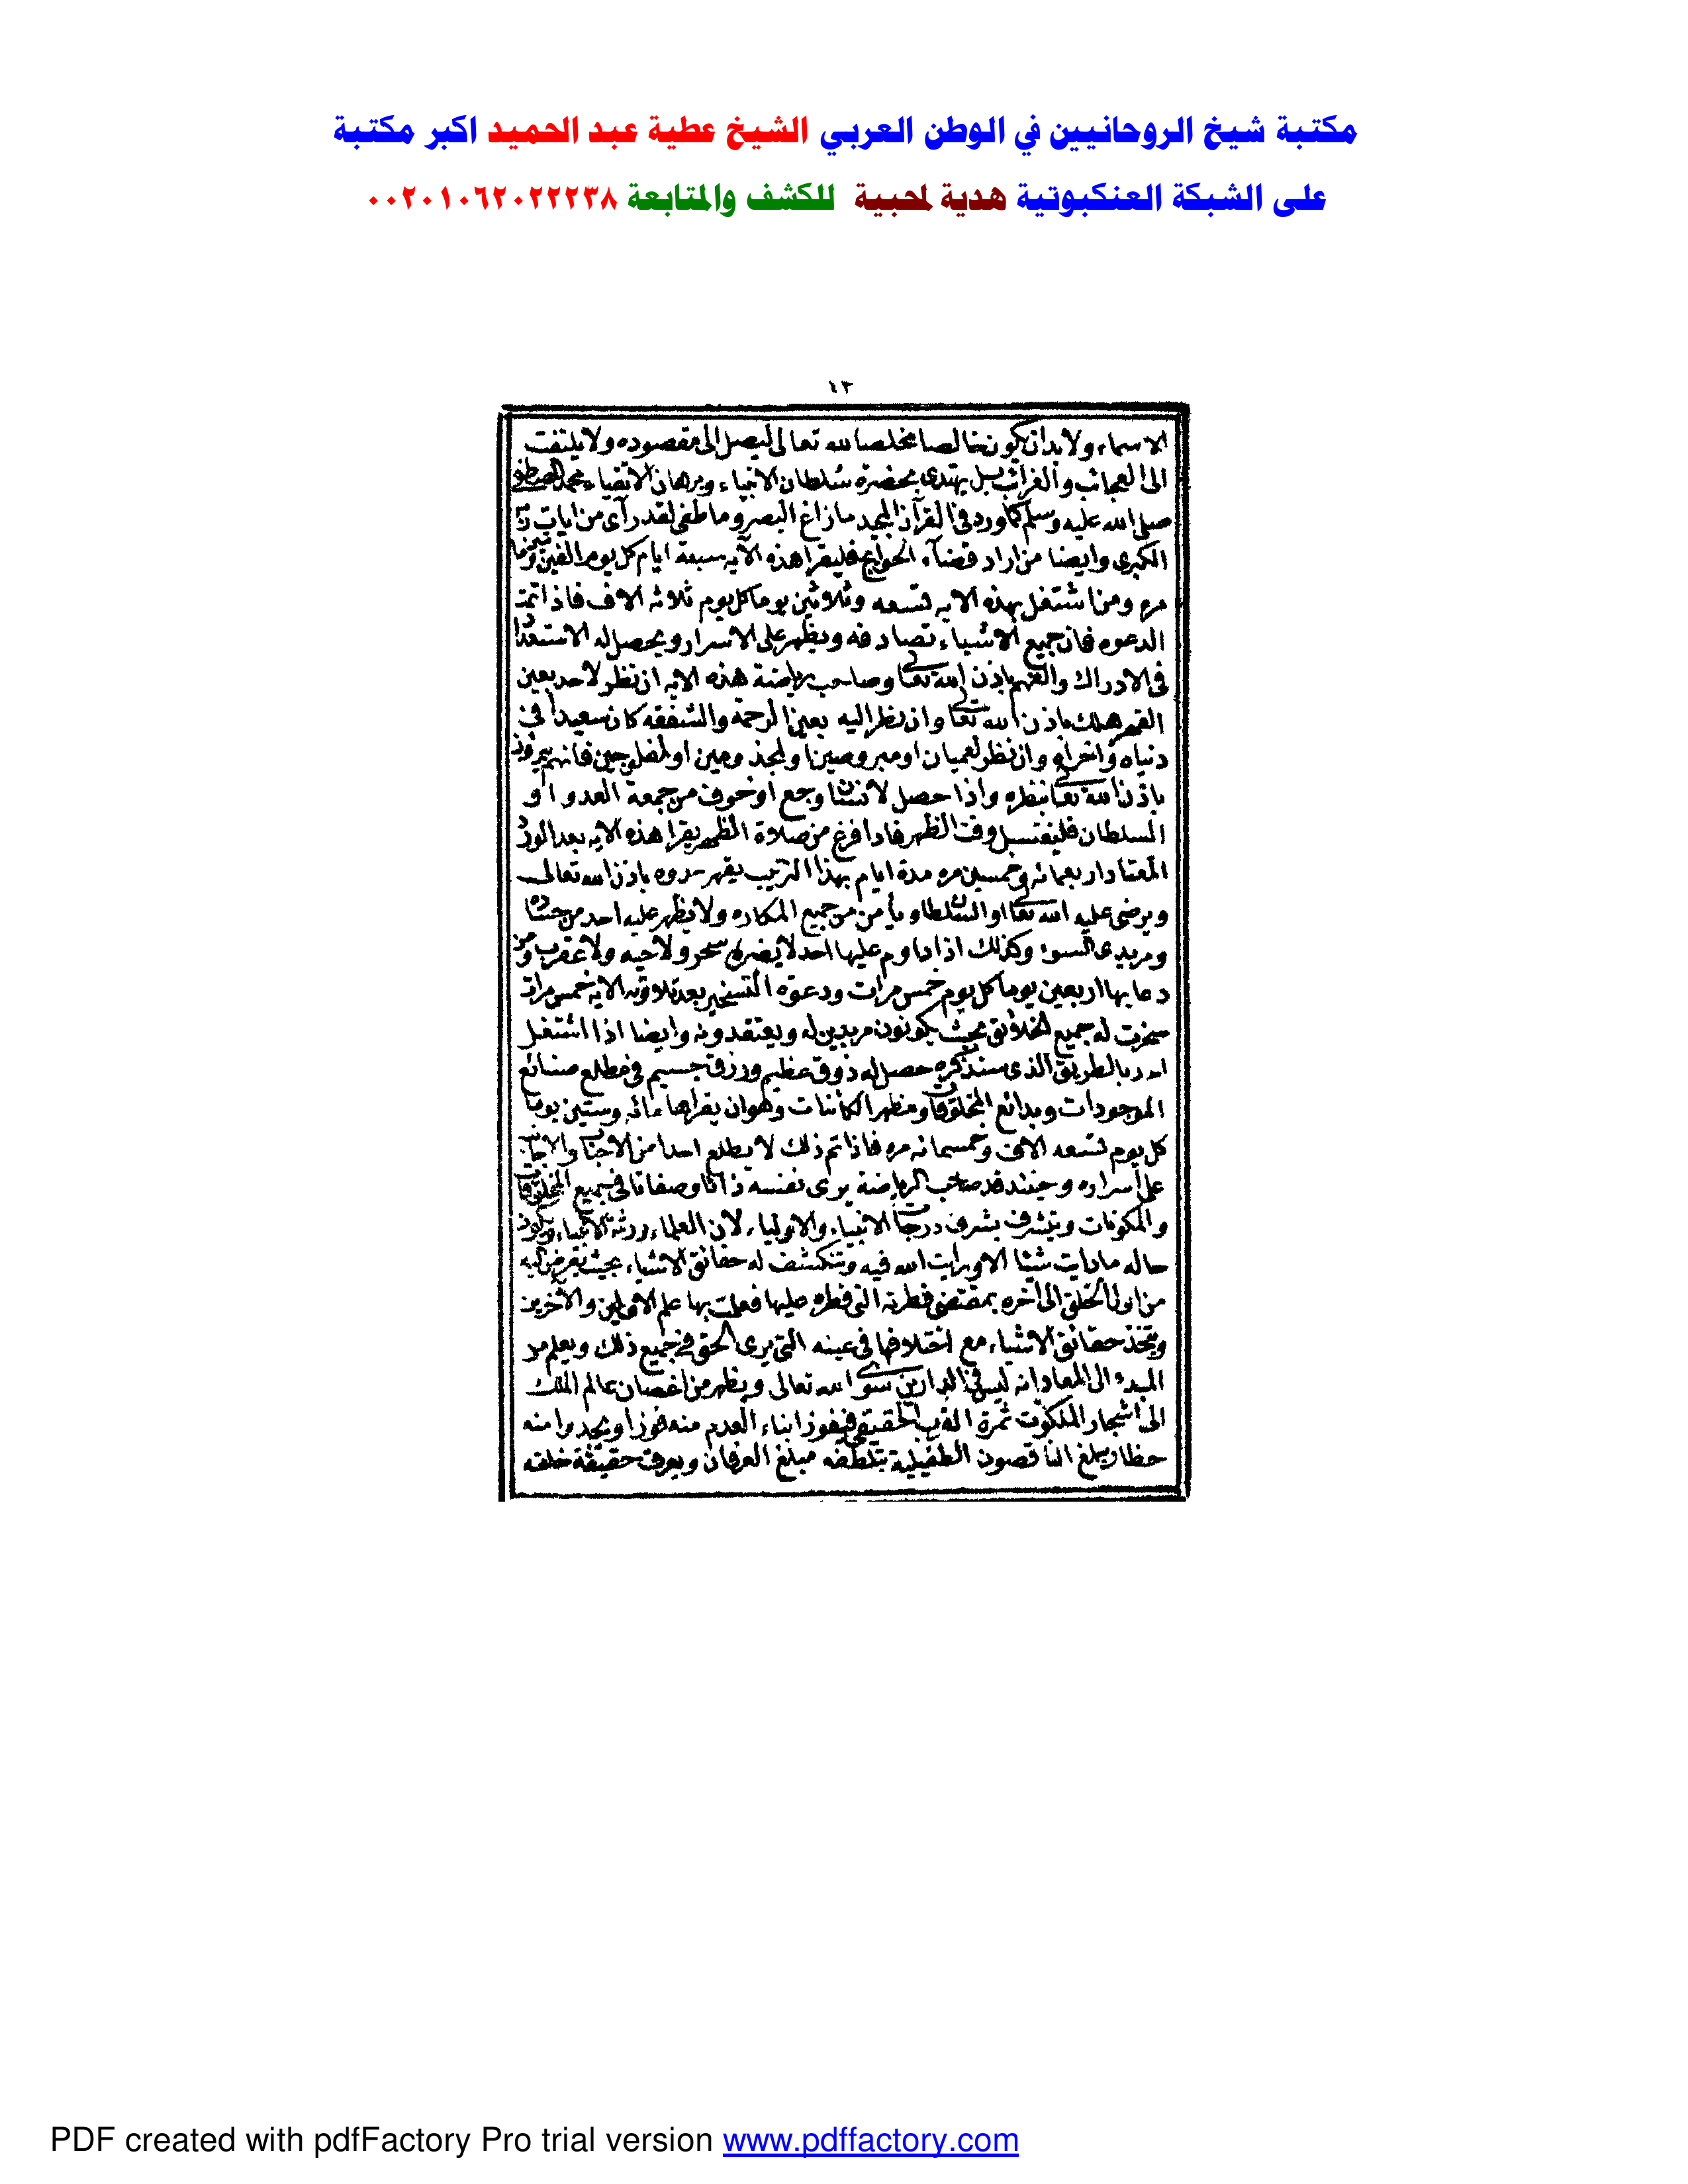 مكتبة شيخ الروحانيين في الوطن العربي الشيخ عطية عبد الحميد اكبر مكتبة
على الشبكة العنكبوتية هدية لمحبية للكشف والمتابعة ٠٠٢٠١٠٦٢٠٢٢٢٣٨
١٢
الاسماء ولابدان يكون خالصا مخلصا لله تعالى ليصل الى مقصوده ولا يلتفت
الى العجائب والغرائب بل يهتدى بحضرة سلطان الانبياء وبرهان الاتقياء محمد المصطفى
صلى الله عليه وسلم كما ورد فى القرآن المجيد ما زاغ البصر وما طغى لقد رآى من ايات ربه
الكبرى وايضا من اراد قضآء الحوايج فليقرا هذه الآيه سبعة ايام كل يوم الفين
مره ومن اشتغل بهذه الايه تسعه وثلاثين يوما كل يوم ثلاثة الاف فاذا تمت
الدعوه فان جميع الاشياء تصادفه ويظهر على الاسرار ويحصل له الاستعداد
فى الادراك والفهم باذن الله تعالى وصاحب رياضة هذه الايه ان نظر لاحد بعين
القهر هلك باذن الله تعالى وان نظر اليه بعين الرحمة والشفقه كان سعيدا فى
دنياه واخراه وان نظر لعميان او مبروصين او لمجذومين او لمفلوجين فانهم يبرؤن
باذن الله تعالى بنظره واذا حصل لانسان وجع او خوف من جمعة العدو او
السلطان فليغتسل وقت الظهر فاذا فرغ من صلاة الظهر يقرا هذه الايه بعد الورد
المعتاد اربعمائه وخمسين مره مدة ايام بهذا الترتيب يقهر عدوه باذن الله تعالى
ويرضى عليه الله تعالى او السلطان ويأمن من جميع المكاره ولا يظهر عليه احد من حساده
ومريدى السوء وكذلك اذا داوم عليها احد لا يضره سحر ولا حيه ولا عقرب ومن
دعا بها اربعين يوما كل يوم خمس مرات ودعوة التسخير بعد تلاوته الايه خمس مرات
سخرت له جميع الخلائق بحيث يكونون مريدين له ويعتقدونه وايضا اذا اشتغل
احد بالطريق الذى سنذكره حصل له ذوق عظيم ورزق جسيم فى مطلع صنائع
الموجودات وبدائع المخلوقات ومظهر الكائنات وهو ان يقراها مائه وستين يوما
كل يوم تسعه الاف وخمسمائه مره فاذا تم ذلك لا يطلع احدا من الاحباب والاجانب
على اسراره وحينئذ صاحب الرياضة يرى نفسه ذاتا وصفاتا فى جميع المخلوقات
والمكونات ويتشرف بشرف درجات الانبياء والاولياء لان العلماء ورثة الانبياء ويكون
حاله ما رايت شيئا الا ورايت الله فيه وتنكشف له حقائق الاشياء بحيث تعرض اليه
من اول الخلق الى آخره بمقتضى فطرته التى فطره عليها فعلمت بها علم الاولين والآخرين
ويتخذ حقائق الاشياء مع اختلافها فى عينه التى يرى الحق فى جميع ذلك ويعلم من
المبدء الى المعاد انه ليس فى الدارين سوى الله تعالى ويظهر من اغصان عالم الملك
الى اشجار الملكوت ثمرة القرب الحقيقى فيفوز ابناء العدم منه فوزا ويجدوا منه
حظا ويبلغ الناقصون الطفيلية بتلطفه مبلغ العرفان ويعرف حقيقة خلقه
PDF created with pdfFactory Pro trial version www.pdffactory.com